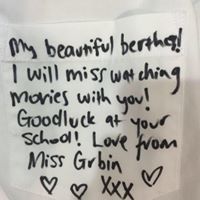 My beautiful berthq!
I will miss watching
Movies with you!
Goodluck at your
school! Love from
Miss Grbin
XXX